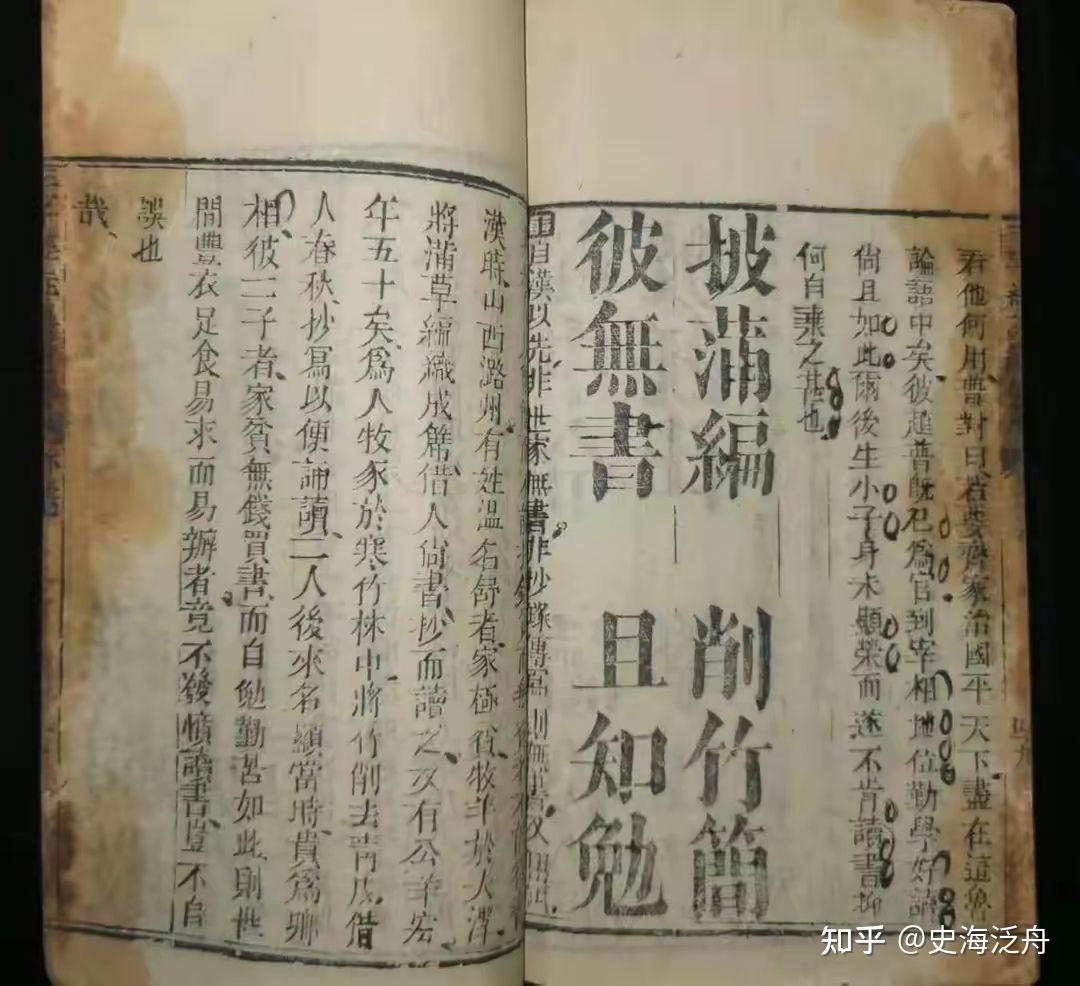 看他何用普對曰若要齊家治國平天下盡在這魯
論語中矣彼趙普既已為官到宰相地位勤學好讀
尚且如此爾後生小子身未顯榮而遂不肯讀書抑
何自棄之甚也
披蒲編 削竹簡
彼無書 且知勉
自漢以先非世家無書非抄錄傳寫則無書又
漢時山西潞州有姓溫名舒者家極貧牧羊於大澤
將蒲草編織成席借人尚書抄而讀之又有公羊宏
年五十矣為人牧豕於寒竹林中將竹削去青皮借
人春秋抄寫以便誦讀二人後來名顯當時貴為卿
相彼二子者家貧無錢買書而自勉勤苦如此則世
間豐衣足食易求而易辦者竟不發憤讀書豈不自
誤也
哉
知乎 @史海泛舟